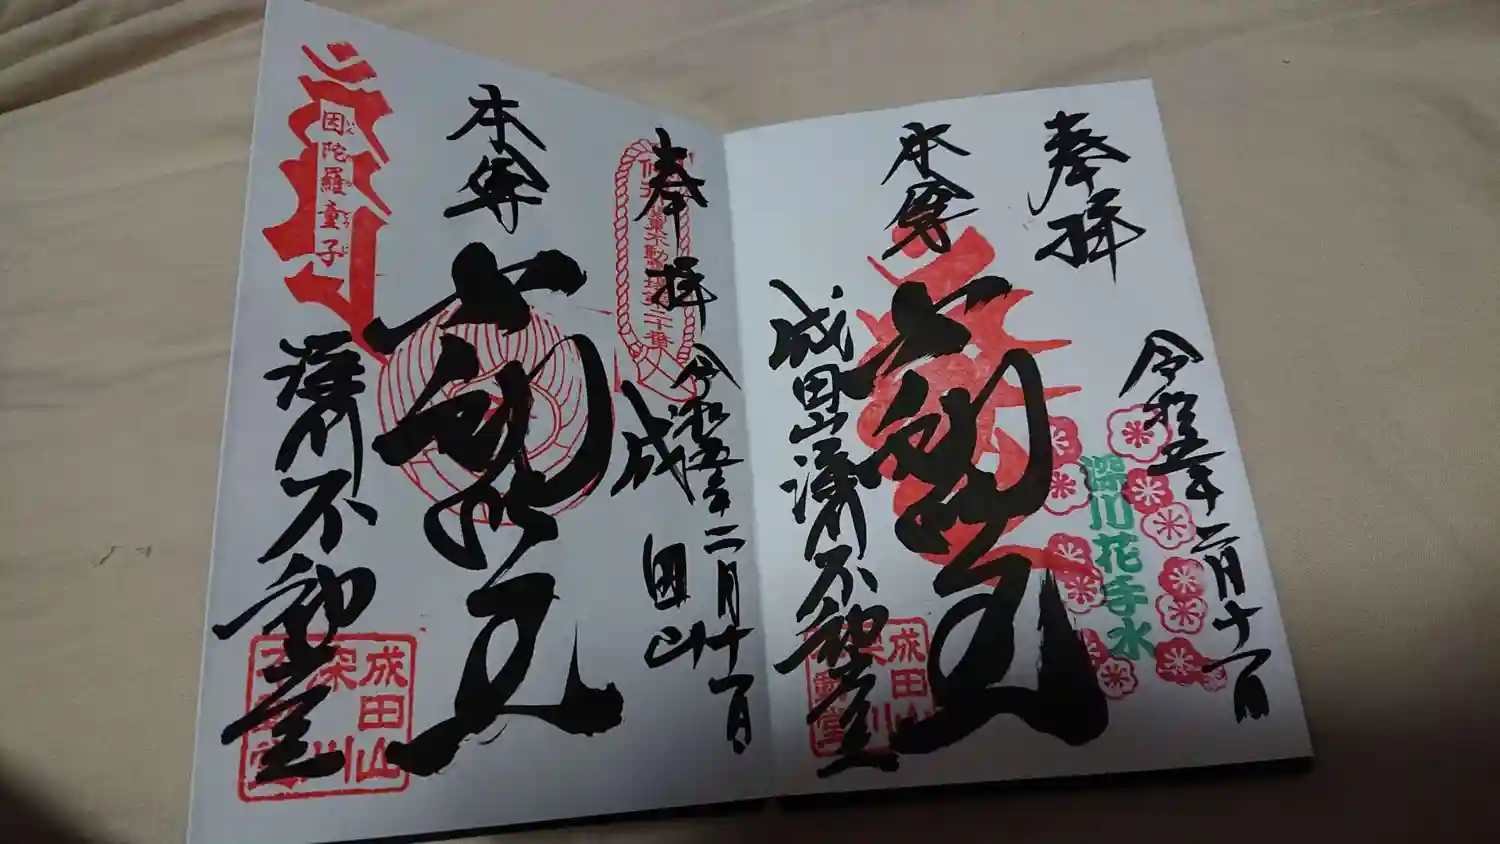 奉拝
令和五年二月十一日
深川花手水
本尊
不動明王
成田山深川不動堂
成田山深川不動堂
奉拝
令和五年二月十一日
成田山
本尊
不動明王
深川不動堂
因陀羅童子
成田山深川不動堂